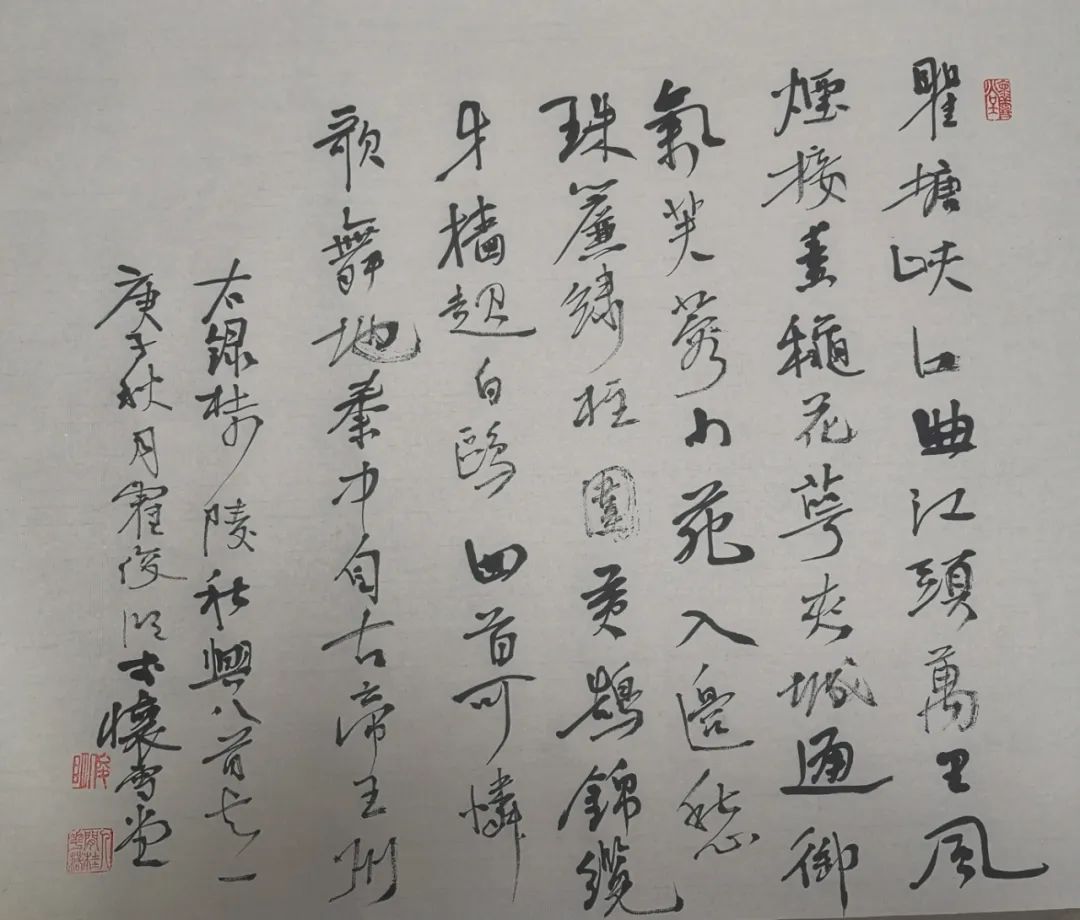 瞿塘峽口曲江頭萬里風
煙接素穐花萼夾城通御
氣芙蓉小苑入邊愁
珠簾繡柱圍黄鵠錦纜
牙檣起白鷗回首可憐
歌舞地秦中自古帝王州
右錄杜少陵秋興八首之一
庚子秋月霍俊明書懷雪堂